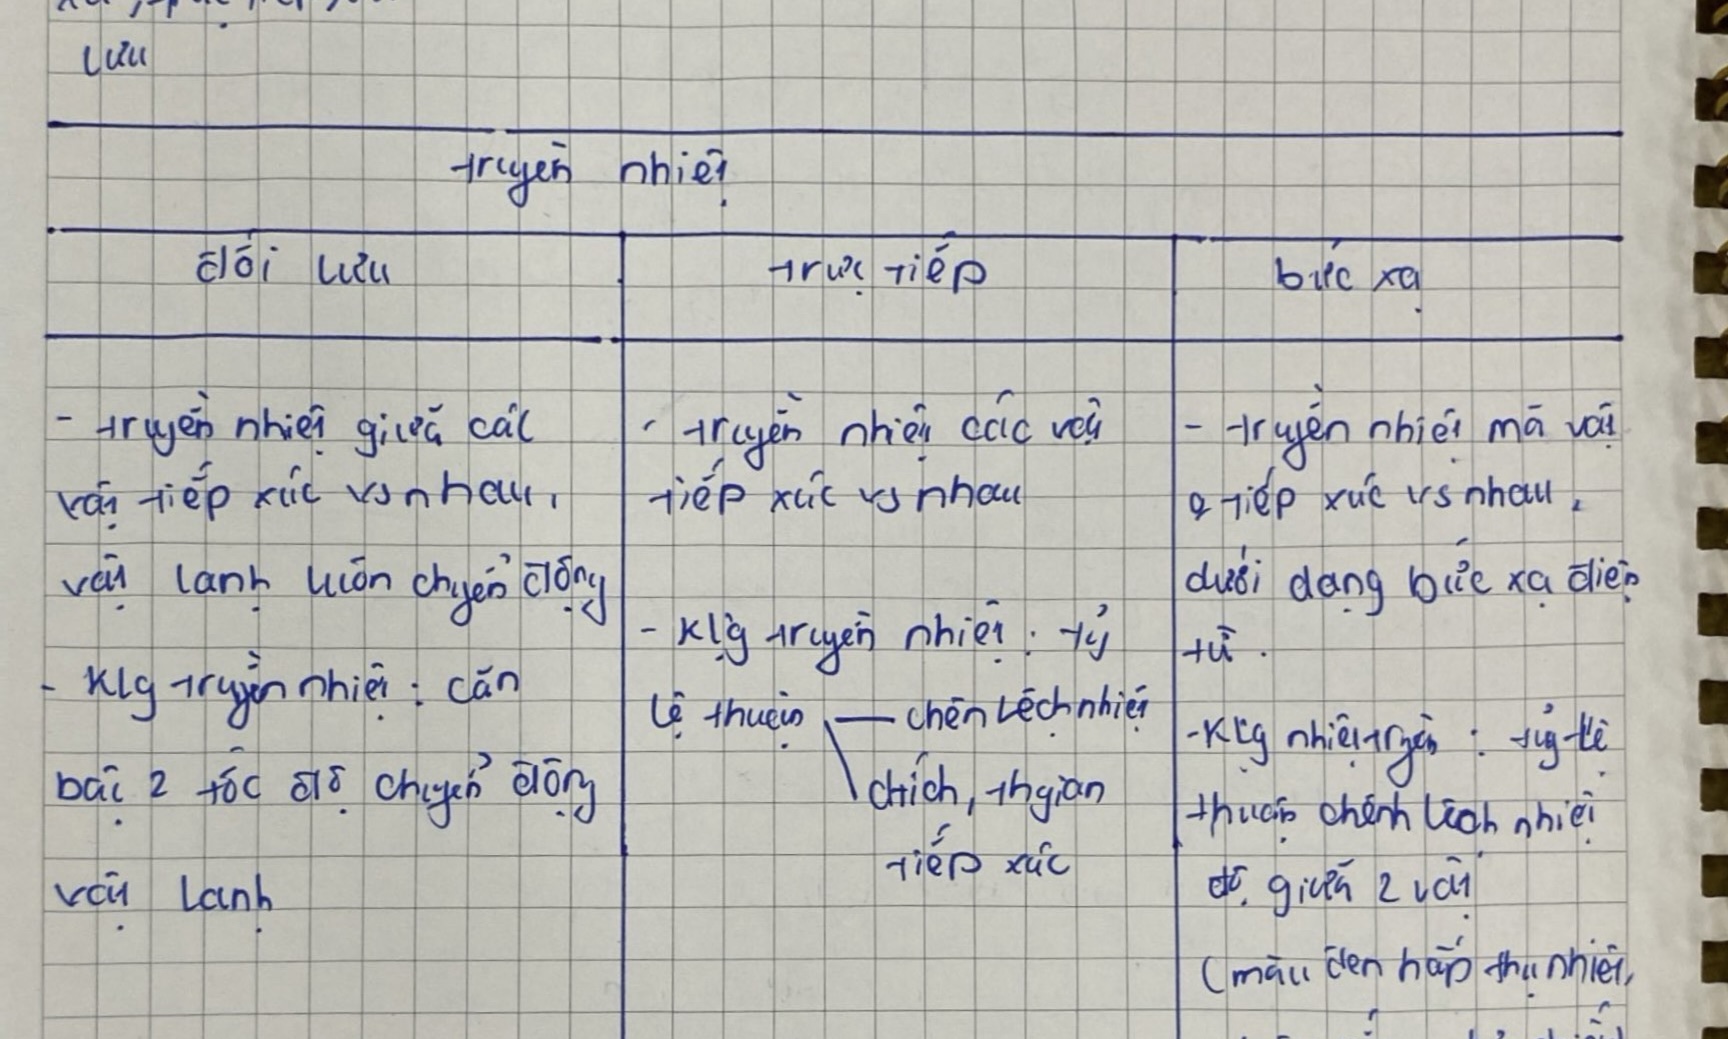 lưu
truyền nhiệt
đối lưu
trực tiếp
bức xạ
- truyền nhiệt giữa các
vật tiếp xúc vs nhau,
vật lạnh luôn chuyển động
- Klg truyền nhiệt : căn
bậc 2 tốc độ chuyển động
vật lạnh
- truyền nhiệt các vật
tiếp xúc vs nhau
- Klg truyền nhiệt : tỷ
lệ thuận — chên lệch nhiệt
dtích, thgian
tiếp xúc
- truyền nhiệt mà vật
tiếp xúc vs nhau,
dưới dạng bức xạ điện
từ.
- Klg nhiệt truyền : tỷ lệ
thuận chênh lệch nhiệt
độ giữa 2 vật
(màu đen hấp thụ nhiệt,